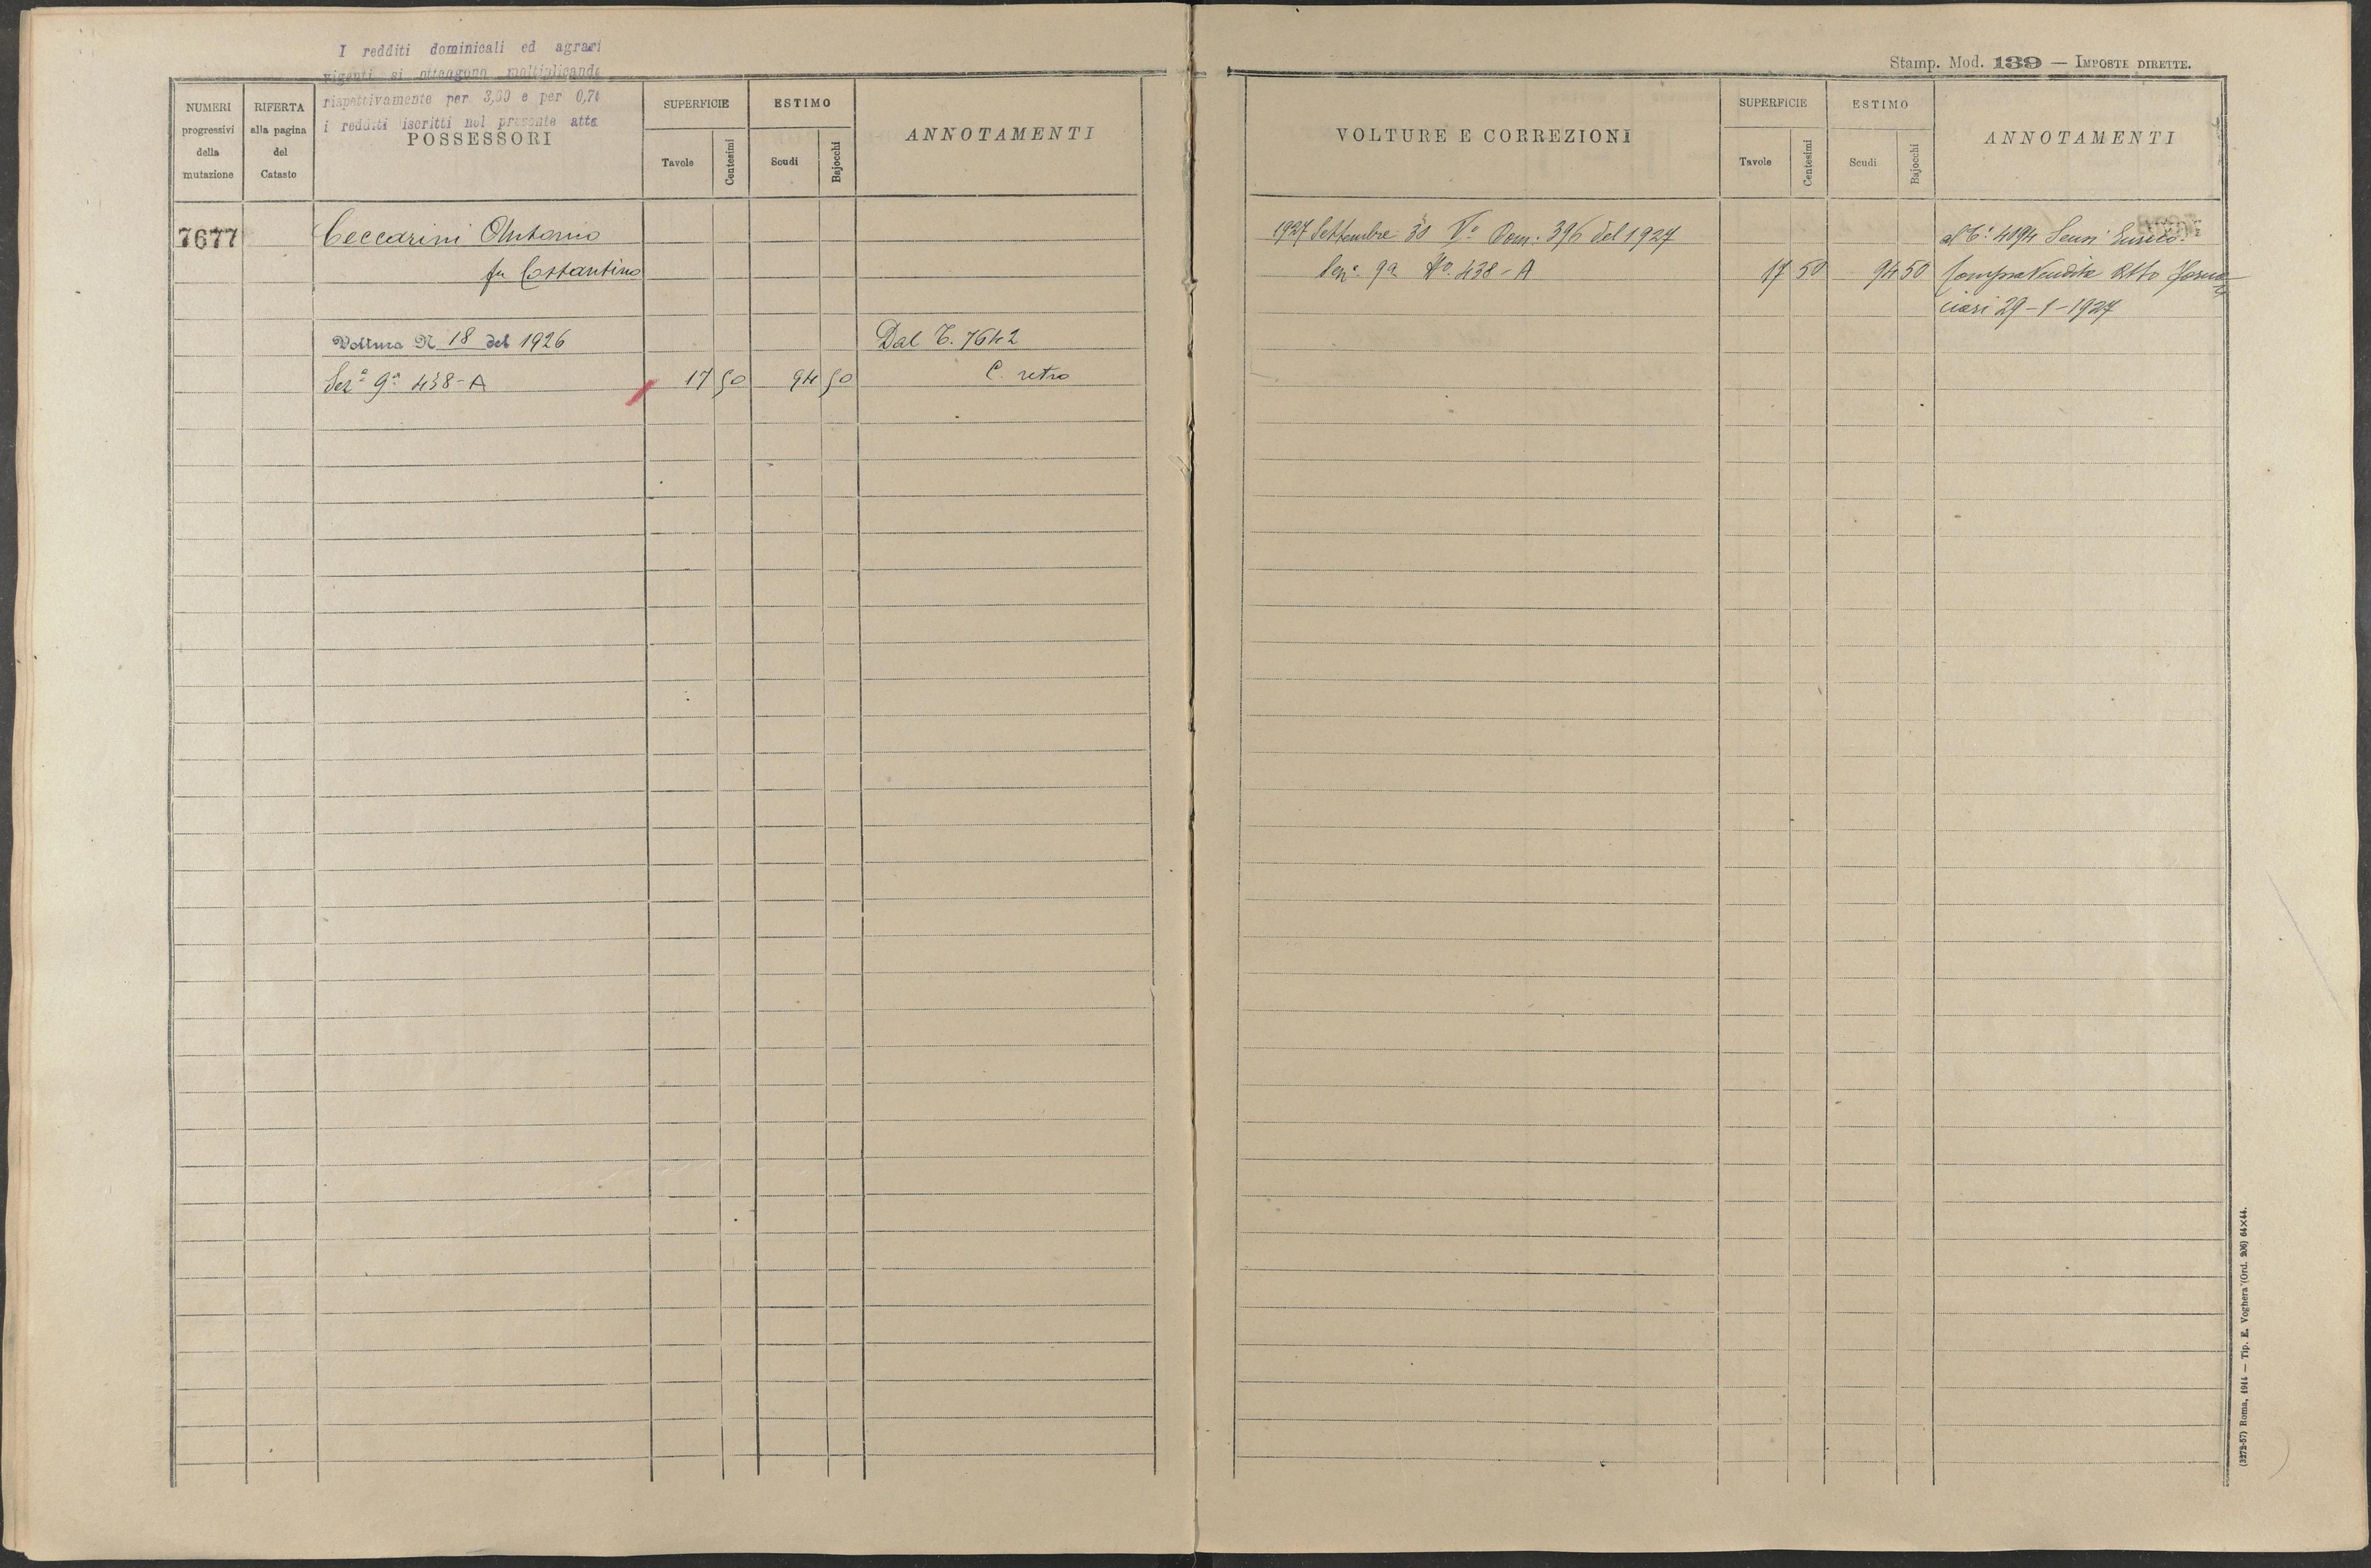 I redditi dominicali ed agrari
vigenti si ottengono moltiplicando
rispettivamente per 3,60 e per
i redditi iscritti nel presente atto
NUMERI progressivi della mutazione
RIFERTA alla pagina del Catasto
POSSESSORI
SUPERFICIE
Tavole
Centesimi
ESTIMO
Scudi
Bajocchi
ANNOTAMENTI
7677
Ceccarini Antonio
fu Costantino
Voltura N 18 del 1926
Dal T. 7642
Sez.e 9a 438-A 17 50 94 50 C. retro
Stamp. Mod. 139 — IMPOSTE DIRETTE.
VOLTURE E CORREZIONI
SUPERFICIE
Tavole
Centesimi
ESTIMO
Scudi
Bajocchi
ANNOTAMENTI
1927 Settembre 30 Va Dom: 396 del 1927 al T: 4094 Sensi
Sez.e 9a No. 438-A 17 50 94 50 Compravendita Atto
29-1-1927
(3272-57) Roma, 1914 — Tip. E. Voghera (Ord. 206) 64×44.